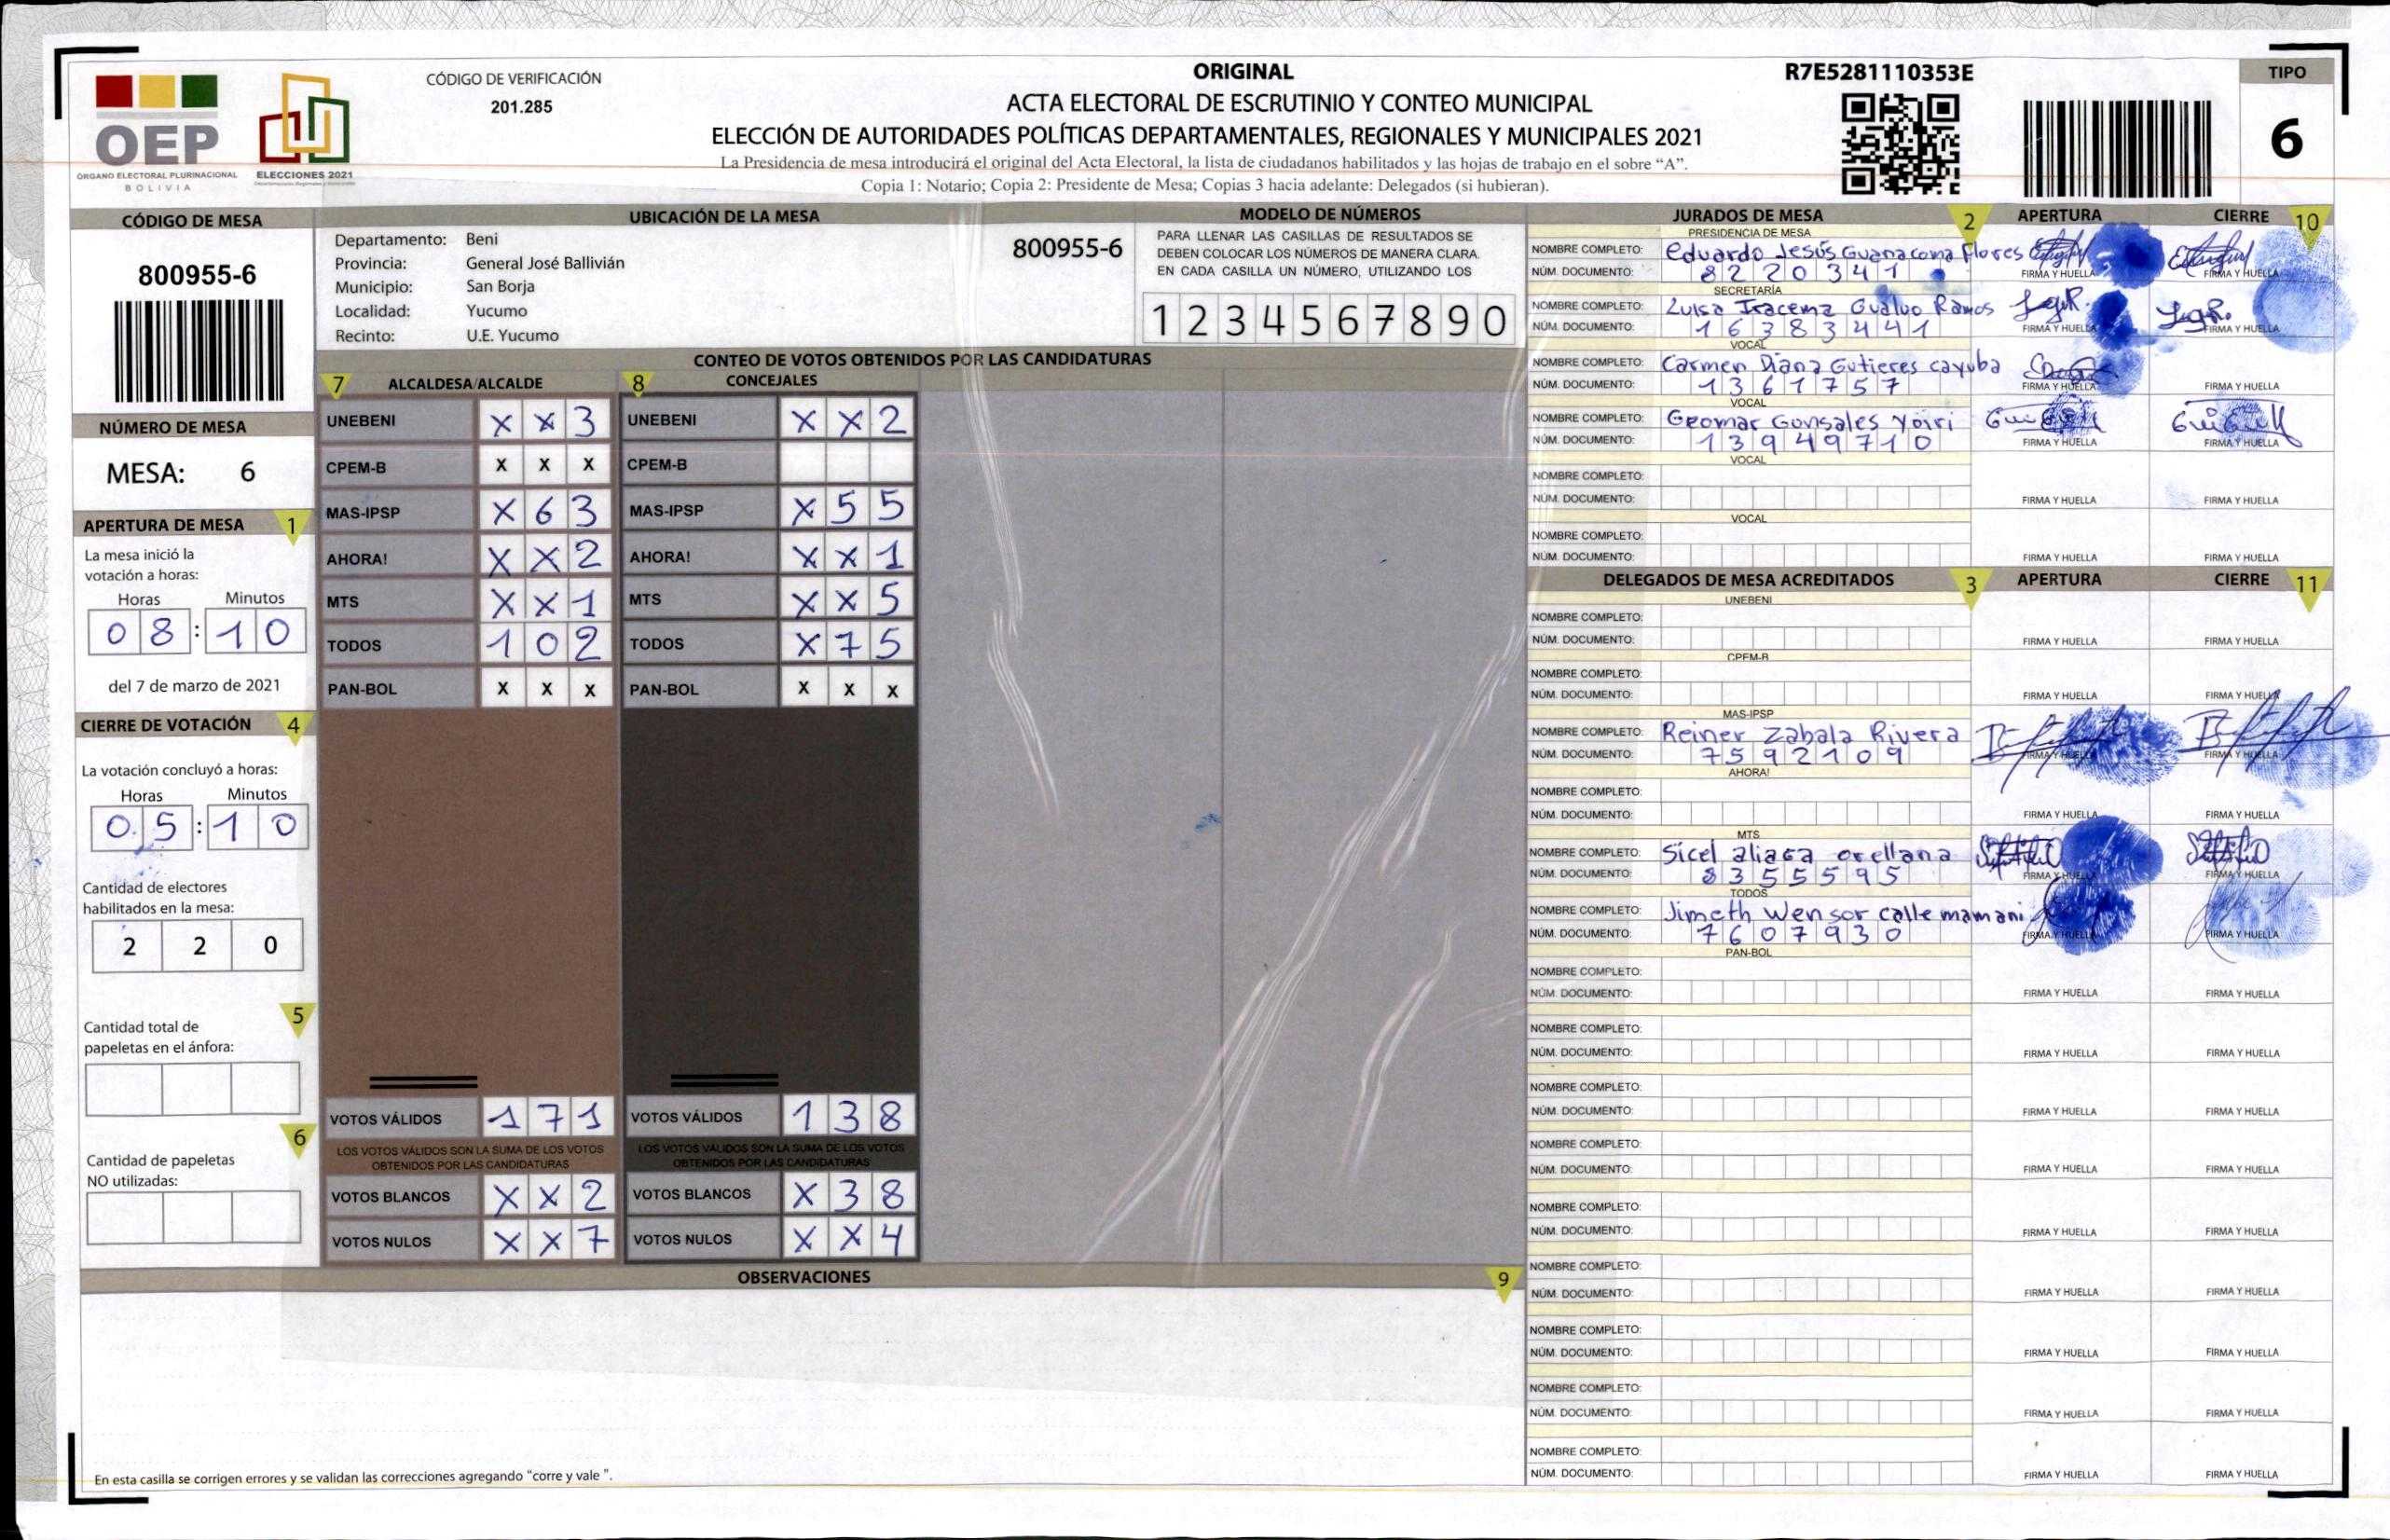 OEP
ÓRGANO ELECTORAL PLURINACIONAL
BOLIVIA
ELECCIONES 2021
CÓDIGO DE VERIFICACIÓN
201.285
ORIGINAL
ACTA ELECTORAL DE ESCRUTINIO Y CONTEO MUNICIPAL
ELECCIÓN DE AUTORIDADES POLÍTICAS DEPARTAMENTALES, REGIONALES Y MUNICIPALES 2021
La Presidencia de mesa introducirá el original del Acta Electoral, la lista de ciudadanos habilitados y las hojas de trabajo en el sobre “A”.
Copia 1: Notario; Copia 2: Presidente de Mesa; Copias 3 hacia adelante: Delegados (si hubieran).
R7E5281110353E
TIPO
6
CÓDIGO DE MESA
800955-6
NÚMERO DE MESA
MESA: 6
APERTURA DE MESA 1
La mesa inició la
votación a horas:
Horas Minutos
08:10
del 7 de marzo de 2021
CIERRE DE VOTACIÓN 4
La votación concluyó a horas:
Horas Minutos
05:10
Cantidad de electores
habilitados en la mesa:
2 2 0
5
Cantidad total de
papeletas en el ánfora:
6
Cantidad de papeletas
NO utilizadas:
UBICACIÓN DE LA MESA
Departamento: Beni
Provincia: General José Ballivián
Municipio: San Borja
Localidad: Yucumo
Recinto: U.E. Yucumo
800955-6
MODELO DE NÚMEROS
PARA LLENAR LAS CASILLAS DE RESULTADOS SE
DEBEN COLOCAR LOS NÚMEROS DE MANERA CLARA.
EN CADA CASILLA UN NÚMERO, UTILIZANDO LOS
1 2 3 4 5 6 7 8 9 0
CONTEO DE VOTOS OBTENIDOS POR LAS CANDIDATURAS
7 ALCALDESA/ALCALDE 8 CONCEJALES
UNEBENI X X 3 UNEBENI X X 2
CPEM-B X X X CPEM-B
MAS-IPSP X 6 3 MAS-IPSP X 5 5
AHORA! X X 2 AHORA! X X 1
MTS X X 1 MTS X X 5
TODOS 1 0 2 TODOS X 7 5
PAN-BOL X X X PAN-BOL X X X
VOTOS VÁLIDOS 1 7 1 VOTOS VÁLIDOS 1 3 8
LOS VOTOS VÁLIDOS SON LA SUMA DE LOS VOTOS LOS VOTOS VÁLIDOS SON LA SUMA DE LOS VOTOS
OBTENIDOS POR LAS CANDIDATURAS OBTENIDOS POR LAS CANDIDATURAS
VOTOS BLANCOS X X 2 VOTOS BLANCOS X 3 8
VOTOS NULOS X X 7 VOTOS NULOS X X 4
OBSERVACIONES 9
En esta casilla se corrigen errores y se validan las correcciones agregando “corre y vale ”.
JURADOS DE MESA 2 APERTURA CIERRE 10
PRESIDENCIA DE MESA
NOMBRE COMPLETO: Eduardo Jesús Guanacoma Flores
NÚM. DOCUMENTO: 8220341 FIRMA Y HUELLA FIRMA Y HUELLA
SECRETARÍA
NOMBRE COMPLETO: Luisa Iracema Gualuo Ramos
NÚM. DOCUMENTO: 16383441 FIRMA Y HUELLA FIRMA Y HUELLA
VOCAL
NOMBRE COMPLETO: Carmen Diana Gutieres cayuba
NÚM. DOCUMENTO: 1361757 FIRMA Y HUELLA FIRMA Y HUELLA
VOCAL
NOMBRE COMPLETO: Geomar Gonsales Yoiri
NÚM. DOCUMENTO: 13949710 FIRMA Y HUELLA FIRMA Y HUELLA
VOCAL
NOMBRE COMPLETO:
NÚM. DOCUMENTO: FIRMA Y HUELLA FIRMA Y HUELLA
VOCAL
NOMBRE COMPLETO:
NÚM. DOCUMENTO: FIRMA Y HUELLA FIRMA Y HUELLA
DELEGADOS DE MESA ACREDITADOS 3 APERTURA CIERRE 11
UNEBENI
NOMBRE COMPLETO:
NÚM. DOCUMENTO: FIRMA Y HUELLA FIRMA Y HUELLA
CPEM-B
NOMBRE COMPLETO:
NÚM. DOCUMENTO: FIRMA Y HUELLA FIRMA Y HUELLA
MAS-IPSP
NOMBRE COMPLETO: Reiner Zabala Rivera
NÚM. DOCUMENTO: 7592109 FIRMA Y HUELLA FIRMA Y HUELLA
AHORA!
NOMBRE COMPLETO:
NÚM. DOCUMENTO: FIRMA Y HUELLA FIRMA Y HUELLA
MTS
NOMBRE COMPLETO: Sicel aliaga orellana
NÚM. DOCUMENTO: 8355595 FIRMA Y HUELLA FIRMA Y HUELLA
TODOS
NOMBRE COMPLETO: Jimeth Wensor calle mamani
NÚM. DOCUMENTO: 7607930 FIRMA Y HUELLA FIRMA Y HUELLA
PAN-BOL
NOMBRE COMPLETO:
NÚM. DOCUMENTO: FIRMA Y HUELLA FIRMA Y HUELLA
NOMBRE COMPLETO:
NÚM. DOCUMENTO: FIRMA Y HUELLA FIRMA Y HUELLA
NOMBRE COMPLETO:
NÚM. DOCUMENTO: FIRMA Y HUELLA FIRMA Y HUELLA
NOMBRE COMPLETO:
NÚM. DOCUMENTO: FIRMA Y HUELLA FIRMA Y HUELLA
NOMBRE COMPLETO:
NÚM. DOCUMENTO: FIRMA Y HUELLA FIRMA Y HUELLA
NOMBRE COMPLETO:
NÚM. DOCUMENTO: FIRMA Y HUELLA FIRMA Y HUELLA
NOMBRE COMPLETO:
NÚM. DOCUMENTO: FIRMA Y HUELLA FIRMA Y HUELLA
NOMBRE COMPLETO:
NÚM. DOCUMENTO: FIRMA Y HUELLA FIRMA Y HUELLA
NOMBRE COMPLETO:
NÚM. DOCUMENTO: FIRMA Y HUELLA FIRMA Y HUELLA